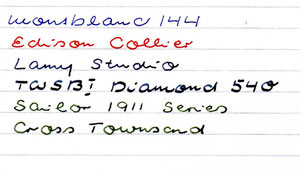 Monsbland 144
Edison Collier
Lamy Studio
TWSBI Diamond 540
Sailor 1911 Series
Cross Townsend